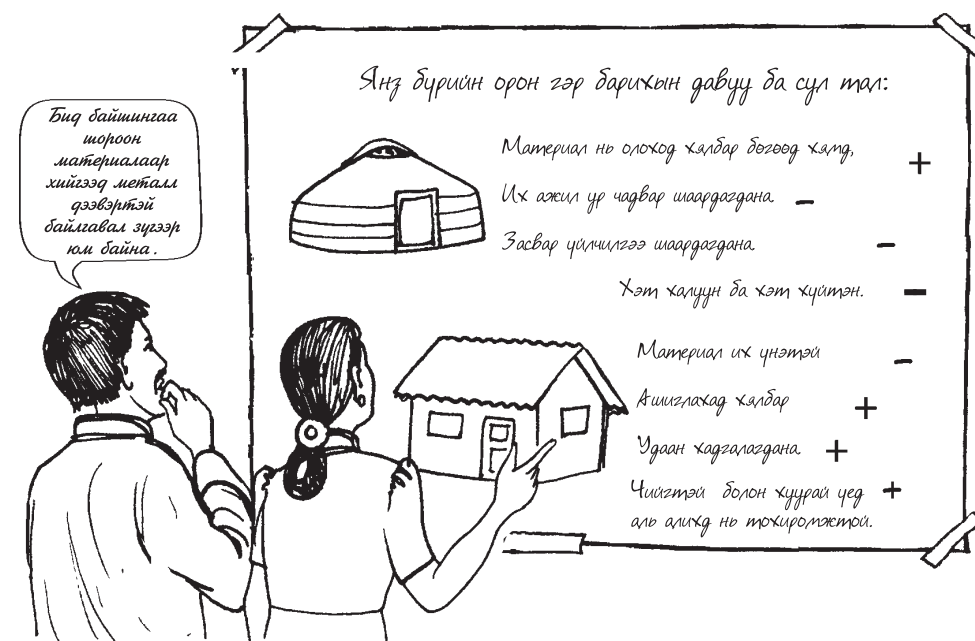 Бид байшингаа
шороон
материалаар
хийгээд металл
дээвэртэй
байлгавал зүгээр
юм байна.
Янз бүрийн орон гэр барихын давуу ба сул тал:
Материал нь олоход хялбар бөгөөд хямд, +
Их ажил ур чадвар шаардагдана. –
Засвар үйлчилгээ шаардагдана. –
Хэт халуун ба хэт хүйтэн. –
Материал их үнэтэй –
Ашиглахад хялбар +
Удаан хадгалагдана. +
Чийгтэй болон хуурай үед +
аль алихд нь тохиромжтой.